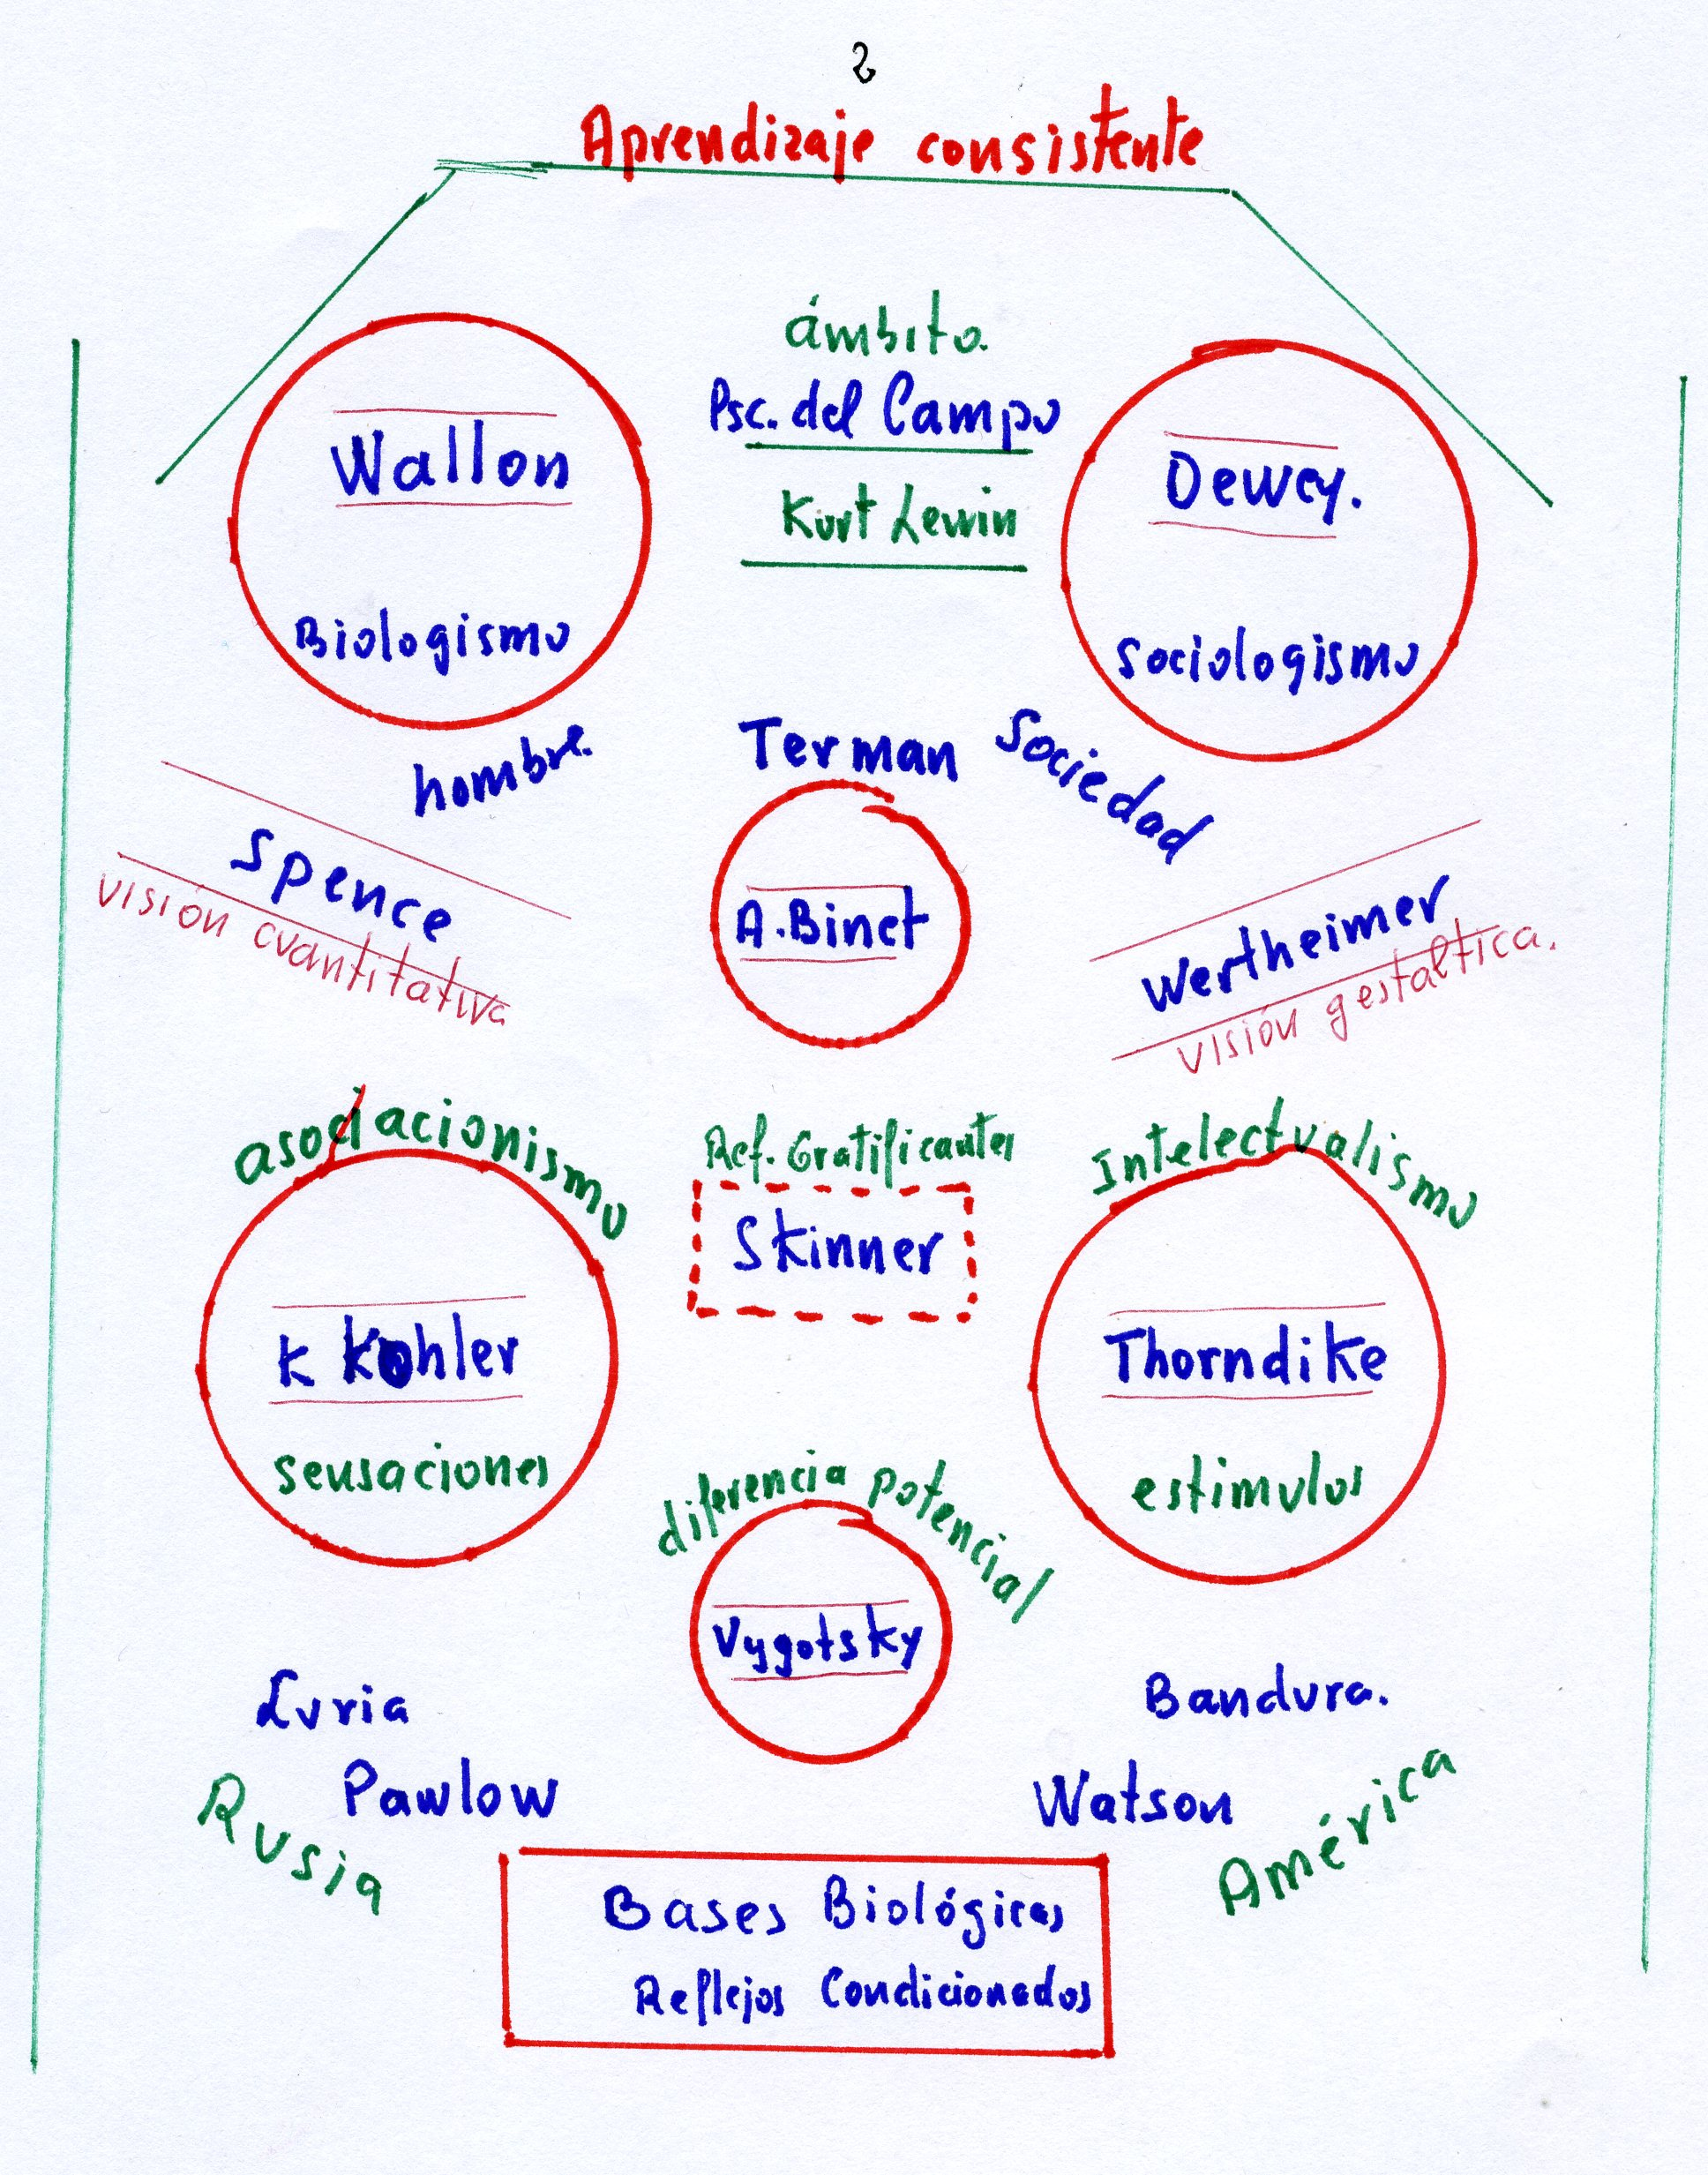 2
Aprendizaje consistente
ámbito.
Psc. del Campo
Kurt Lewin
Wallon
Biologismo
Dewey.
Sociologismo
hombre.
Terman
Sociedad
Spence
visión cuantitativa
A. Binet
Wertheimer
visión gestaltica.
asociacionismo
Ref. Gratificantes
Intelectualismo
Skinner
K Kohler
sensaciones
Thorndike
estimulos
diferencia potencial
Vygotsky
Luria
Pawlow
Rusia
Bandura.
Watson
América
Bases Biológicas
Reflejos Condicionados